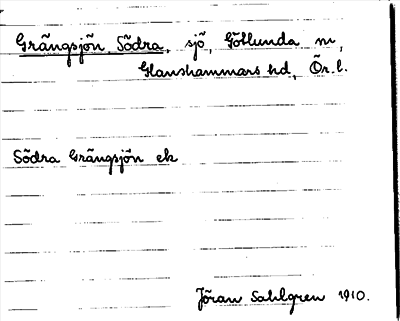 Grängsjön, Södra, sjö, Götlunda sn,
Glanshammars hd, Ör. l.
Södra Grängsjön ek
Jöran Sahlgren 1910.